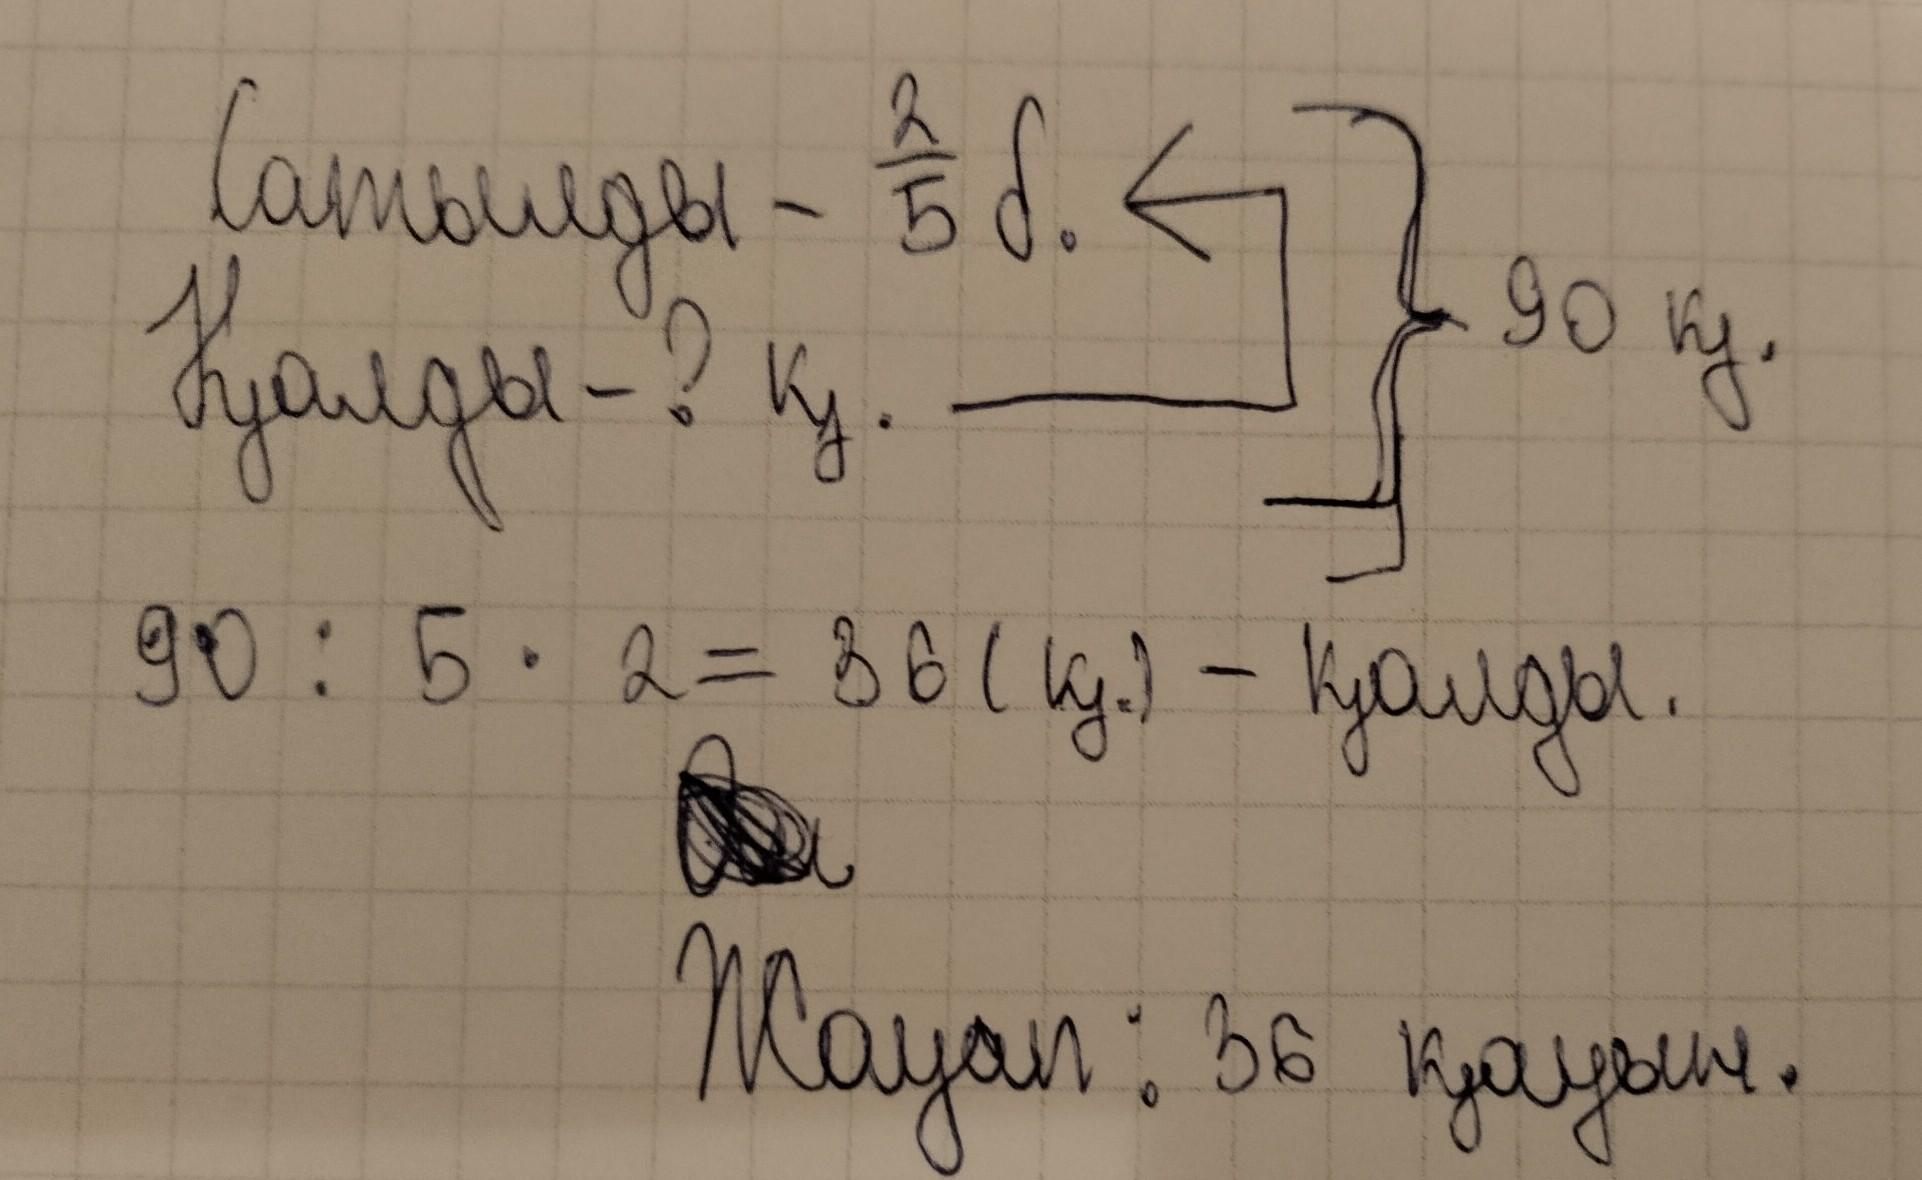 Сатылды - 2/5 б.
Қалды - ? қ.
90 қ.
90 : 5 · 2 = 36 (қ.) - қалды.
Жауап: 36 қауын.